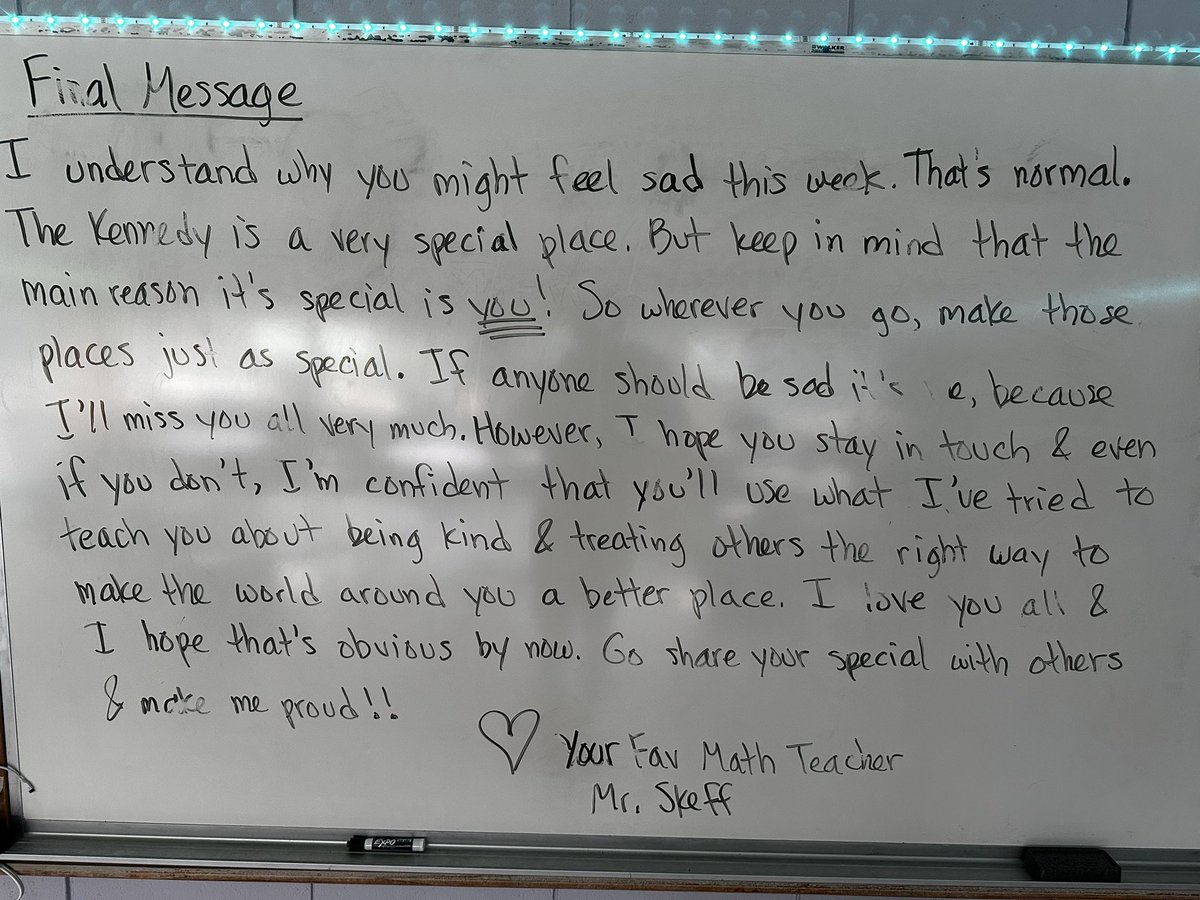 Final Message
I understand why you might feel sad this week. That's normal.
The Kennedy is a very special place. But keep in mind that the
main reason it's special is you! So wherever you go, make those
places just as special. If anyone should be sad it's e, because
I'll miss you all very much. However, I hope you stay in touch & even
if you don't, I'm confident that you'll use what I've tried to
teach you about being kind & treating others the right way to
make the world around you a better place. I love you all &
I hope that's obvious by now. Go share your special with others
& make me proud!!
Your Fav Math Teacher
Mr. Skeff
EXPO